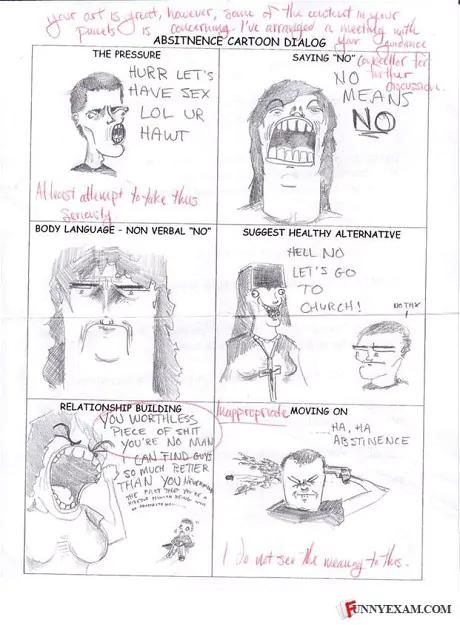 your art is great, however, some of the content in your
panels is concerning. I've arranged a meeting with
your guidance
counsellor for
further
discussion.
ABSITNENCE CARTOON DIALOG
THE PRESSURE
HURR LET'S
HAVE SEX
LOL UR
HAWT
At least attempt to take this
seriously
SAYING "NO"
NO
MEANS
NO
BODY LANGUAGE - NON VERBAL "NO"
SUGGEST HEALTHY ALTERNATIVE
HELL NO
LET'S GO
TO
CHURCH!
NO THX
RELATIONSHIP BUILDING
YOU WORTHLESS
PIECE OF SHIT
YOU'RE NO MAN
I CAN FIND GUYS
SO MUCH BETTER
THAN YOU
THE FACT THAT YOU'RE A
Inappropriate
MOVING ON
HA, HA
ABSTINENCE
I do not see the meaning to this.
FUNNYEXAM.COM